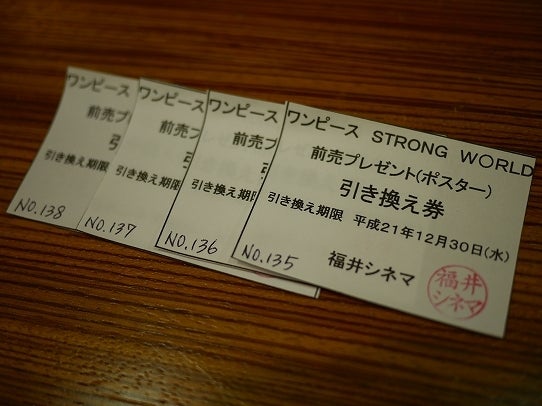 ワンピース STRONG WORLD
前売プレゼント(ポスター)
引き換え券
引き換え期限 平成21年12月30日(水)
福井シネマ
福井
シネマ
NO.135
ワンピース
前売
引
引き換え期
NO.136
ワンピース
前売プ
引
引き換え期限
NO.137
ワンピース
前売プ
引
引き換え期限
NO.138